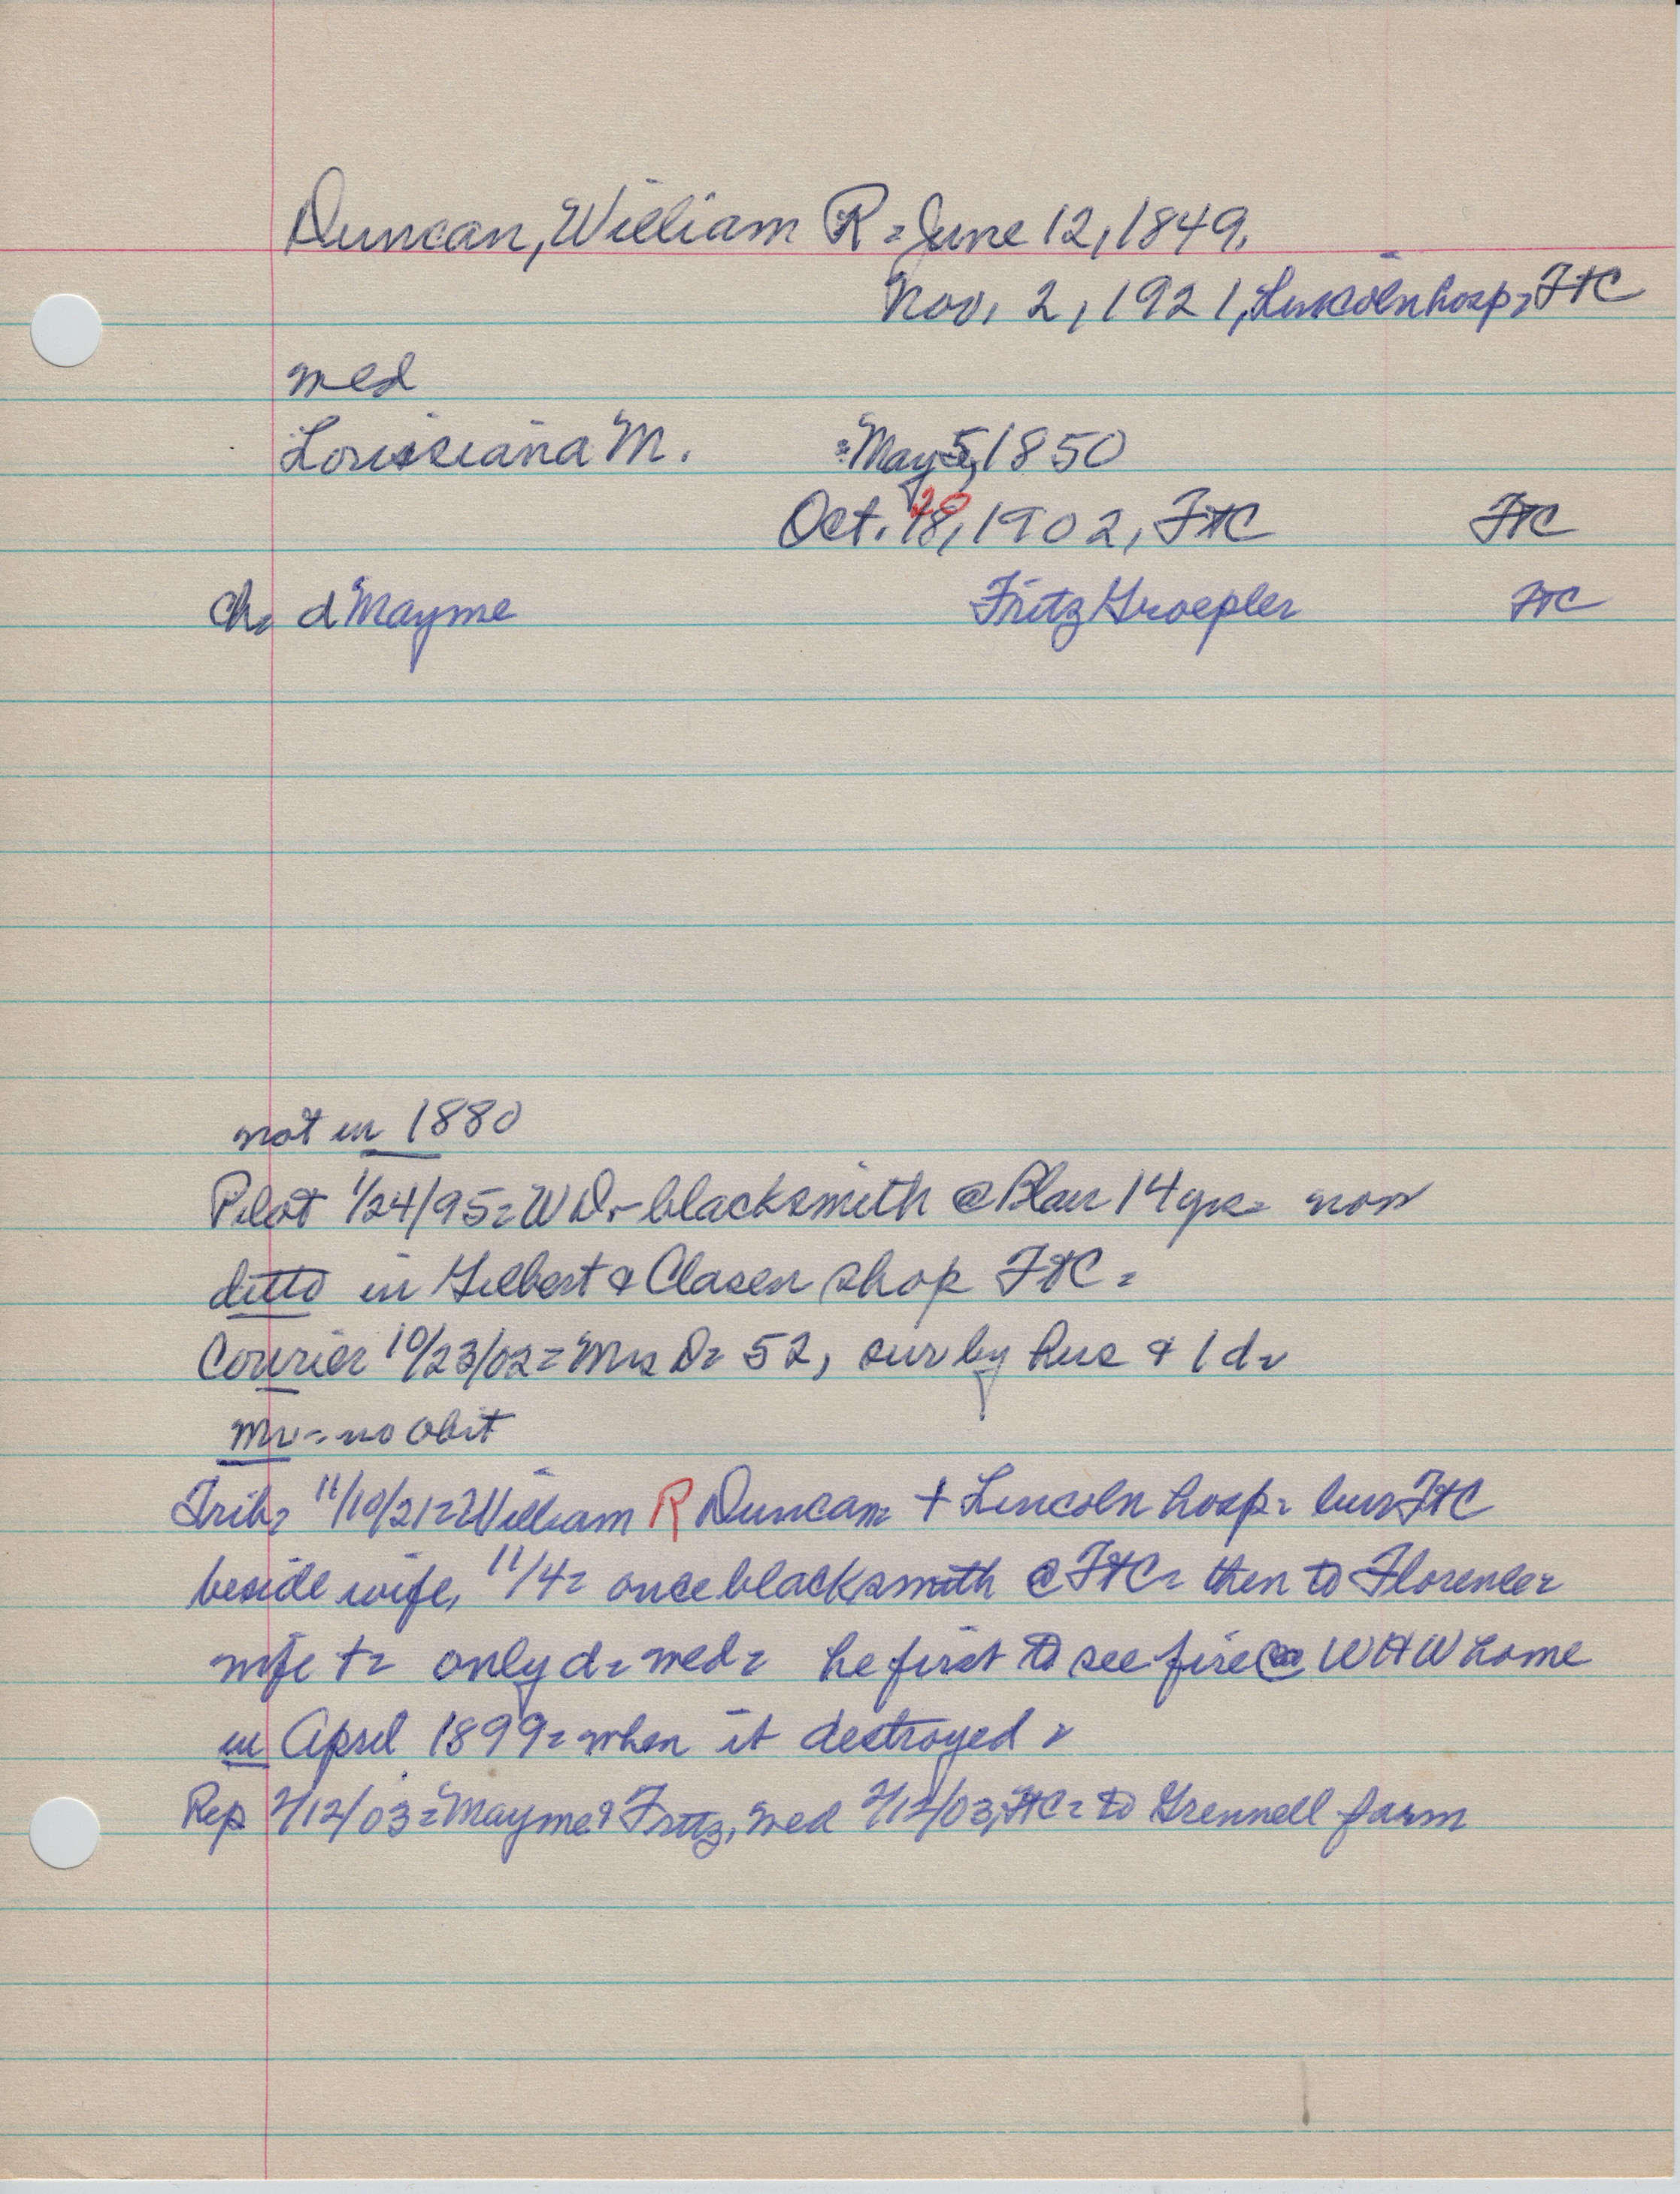 Duncan, William R = June 12, 1849.
Nov. 2, 1921, Lincoln hosp = FtC
med
Louisiana M. = May 5, 1850
Oct. 18, 20 1902, FtC FtC
Ch = d Mayme Fritz Groepler FtC
not in 1880
Pilot 1/24/95 = W D. - blacksmith @ Blair 14 yrs = now
ditto in Gilbert & Clasen shop FtC =
Courier 10/23/02 = Mrs D = 52, sur by hus & 1 d =
mv = no obit
Trib = 11/10/21 = William R Duncan = + Lincoln hosp = bur FtC
beside wife, 11/4 = once blacksmith @ FtC = then to Florence =
wife + = only d = med = he first to see fire @ WHW home
in April 1899 = when it destroyed =
Rep 2/12/03 = Mayme & Fritz, med 2/12/03, FtC = to Grennell farm